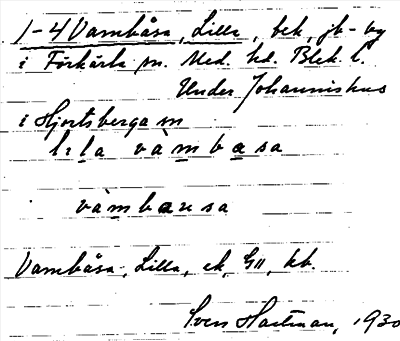 1-4 Vambåsa, Lilla, bek, jb-by
i Förkärla sn. Med. hd. Blek. l.
Under Johannishus
i Hjortsberga sn
lıla vàmbasa
vàmbasa
Vambåsa, Lilla, ek, GII, kb.
Sven Hartman, 1930